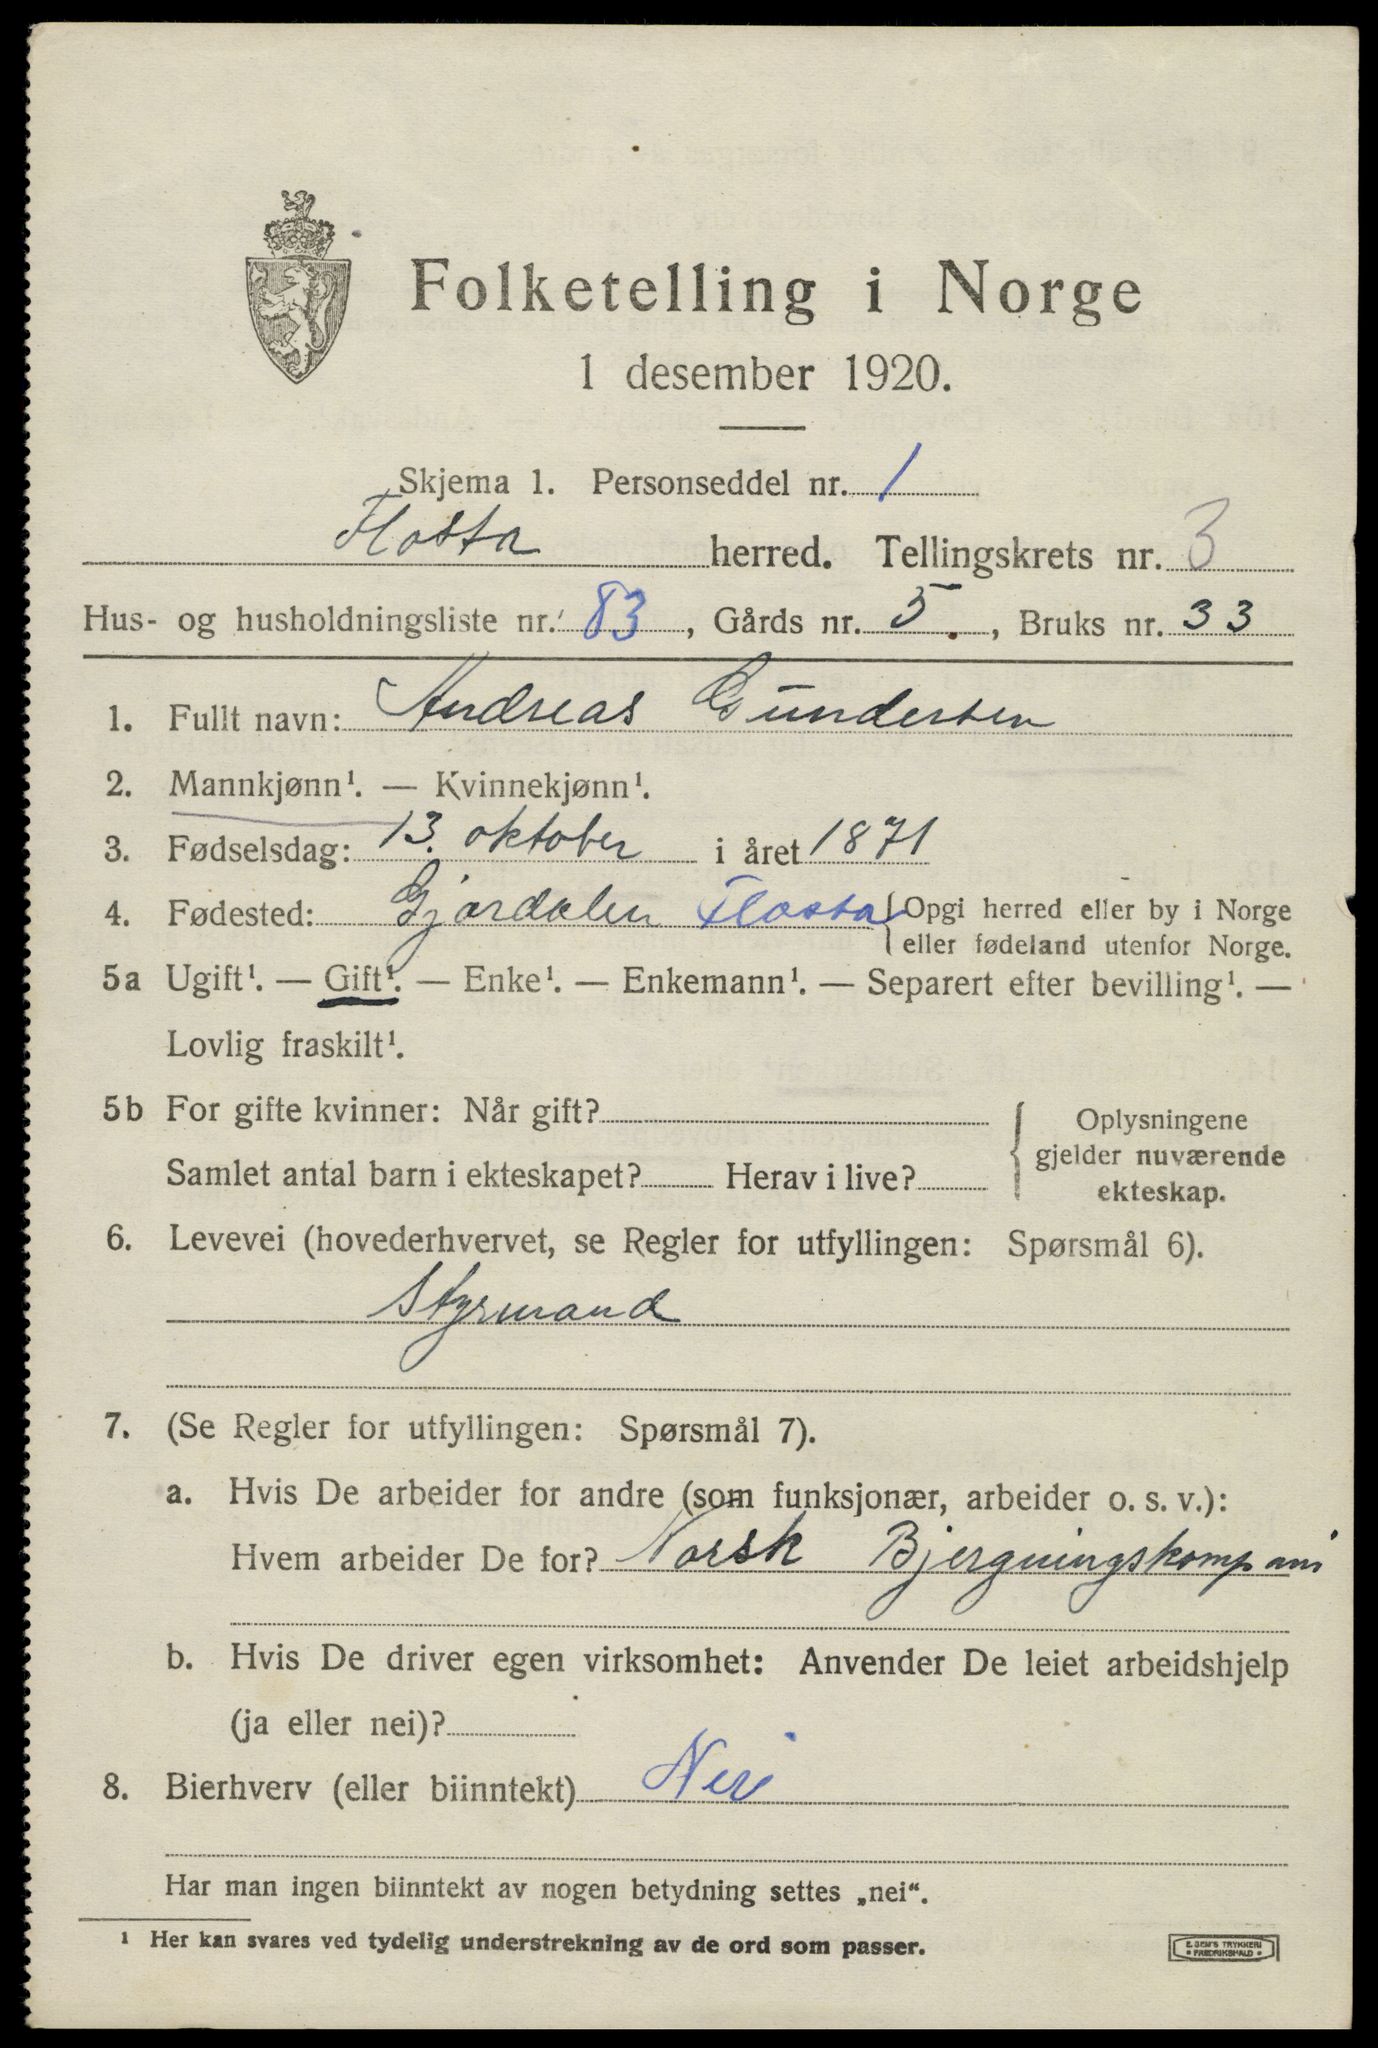 Folketelling i Norge
1 desember 1920.
Skjema 1. Personseddel nr. 1
Flosta herred. Tellingskrets nr. 3
Hus- og husholdningsliste nr. 83, Gårds nr. 5., Bruks nr. 33
1. Fullt navn: Andreas Gundersen
2. Mannkjønn¹. — Kvinnekjønn¹.
3. Fødselsdag: 13. oktober i året 1871
4. Fødested: Gjerdalen Flosta { Opgi herred eller by i Norge
eller fødeland utenfor Norge.
5a Ugift¹. — Gift¹. — Enke¹. — Enkemann¹. — Separert efter bevilling¹. —
Lovlig fraskilt¹.
5b For gifte kvinner: Når gift? { Oplysningene
gjelder nuværende
Samlet antal barn i ekteskapet? Herav i live?
ekteskap.
6. Levevei (hovederhvervet, se Regler for utfyllingen: Spørsmål 6).
Styrmand
7. (Se Regler for utfyllingen: Spørsmål 7).
a. Hvis De arbeider for andre (som funksjonær, arbeider o. s. v.):
Hvem arbeider De for? Norsk Bjergningskompani
b. Hvis De driver egen virksomhet: Anvender De leiet arbeidshjelp
(ja eller nei)?
8. Bierhverv (eller biinntekt) Nei
Har man ingen biinntekt av nogen betydning settes „nei“.
¹ Her kan svares ved tydelig understrekning av de ord som passer.
E. SEM'S TRYKKERI
• FREDRIKSHALD •